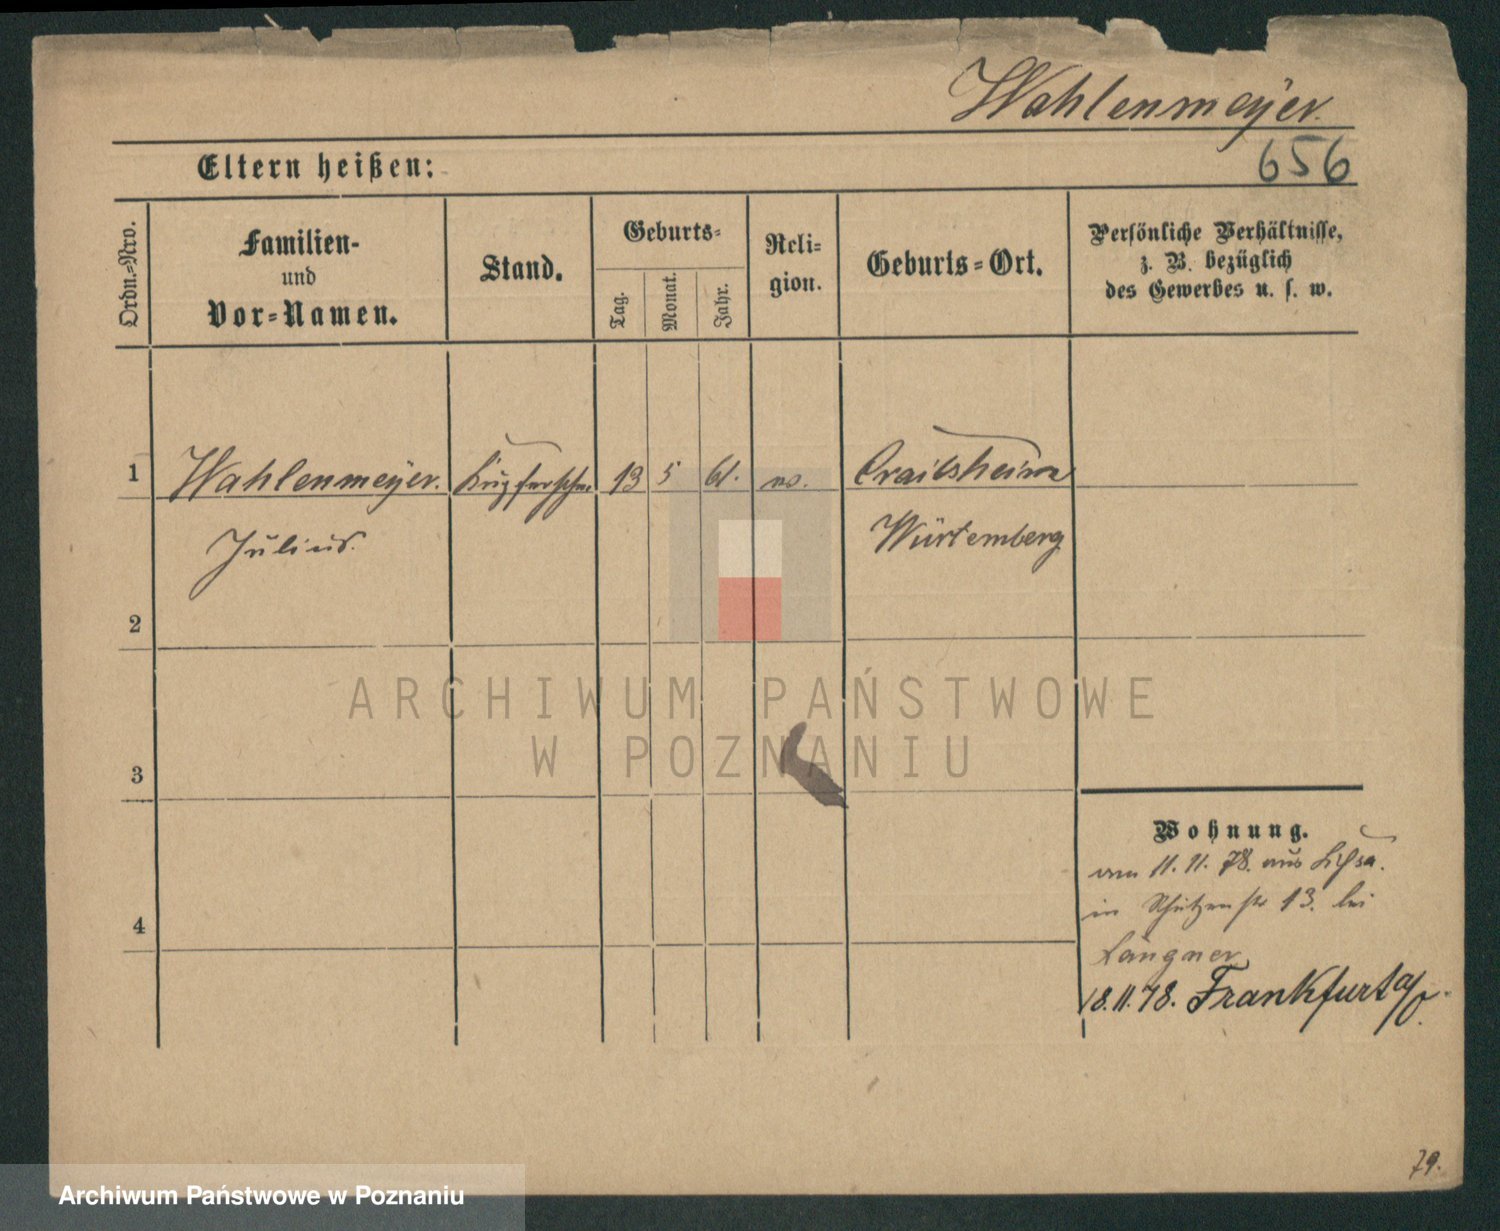 Wahlenmeÿer.
656
Eltern heißen:
Ordn.-Nro.
Familien-
und
Vor-Namen.
Stand.
Geburts-
Tag.
Monat.
Jahr.
Reli-
gion.
Geburts-Ort.
Persönliche Verhältnisse,
z. B. bezüglich
des Gewerbes u. s. w.
1
Wahlenmeÿer. Kupferschm 13 5 61. ev. Crailsheim
Julius. Würtemberg
2
3
4
Wohnung.
am 11. 11. 78. aus
in Schützenstr 13. bei
Langner
18.11.78. Frankfurt a/o.
79.
ARCHIWUM PAŃSTWOWE
W POZNANIU
Archiwum Państwowe w Poznaniu